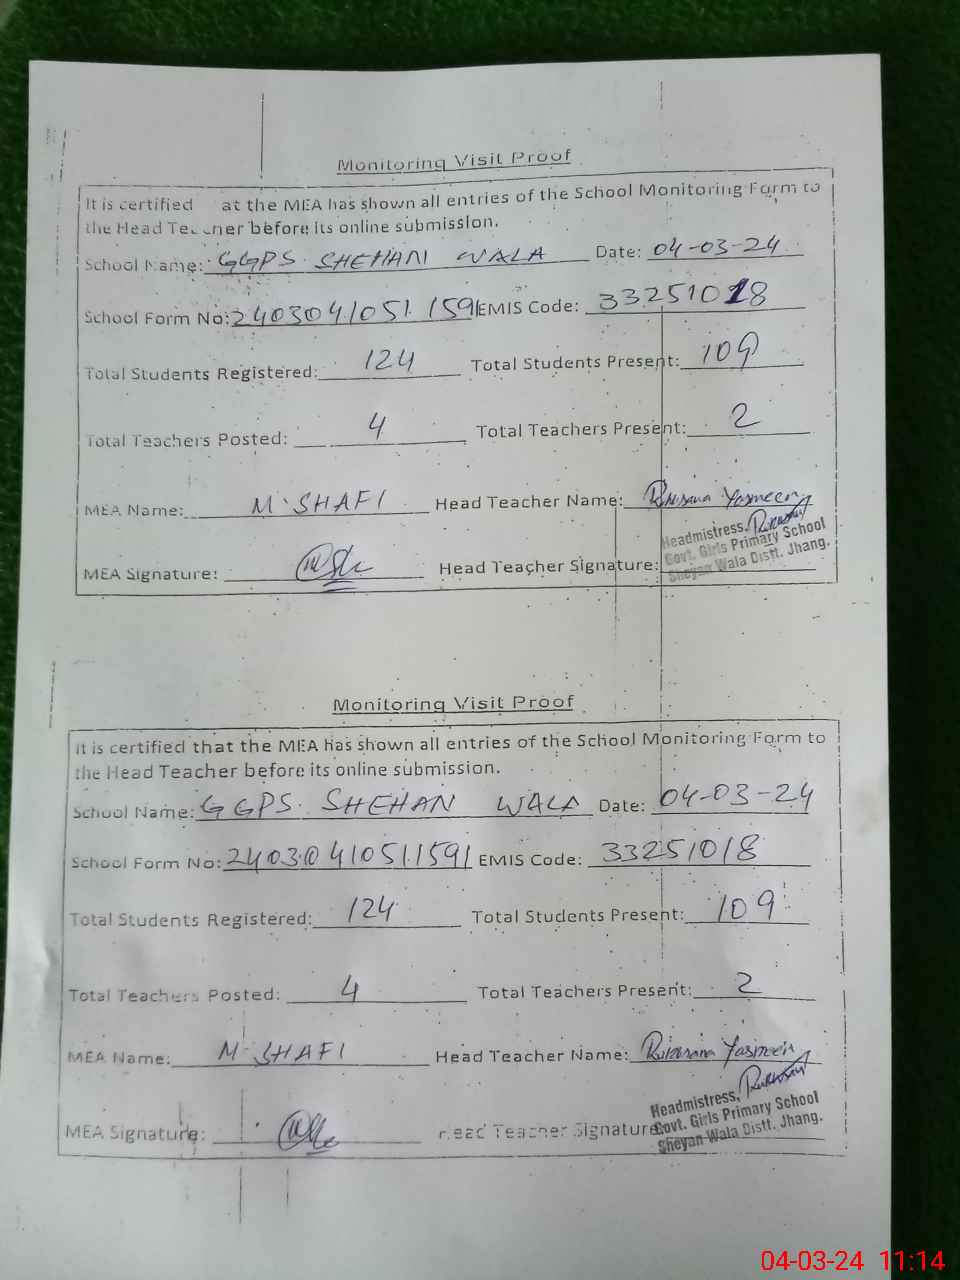 Monitoring Visit Proof
It is certified at the MEA has shown all entries of the School Monitoring Form to
the Head Teacher before its online submission.
School Name: GGPS SHEHAN WALA Date: 04-03-24
School Form No: 2403041051.1591 EMIS Code: 33251018
Total Students Registered: 124 Total Students Present: 109
Total Teachers Posted: 4 Total Teachers Present: 2
MEA Name: M. SHAFI Head Teacher Name: Rukhsana Yasmeen
Headmistress,
MEA Signature: Head Teacher Signature: Govt. Girls Primary School
Sheyan Wala Distt. Jhang.
Monitoring Visit Proof
It is certified that the MEA has shown all entries of the School Monitoring Form to
the Head Teacher before its online submission.
School Name: GGPS. SHEHAN WALA Date: 04-03-24
School Form No: 2403041051.1591 EMIS Code: 33251018
Total Students Registered: 124 Total Students Present: 109
Total Teachers Posted: 4 Total Teachers Present: 2
MEA Name: M. SHAFI Head Teacher Name: Rukhsana Yasmeen
Headmistress,
MEA Signature: Head Teacher Signature: Govt. Girls Primary School
Sheyan Wala Distt. Jhang.
04-03-24 11:14